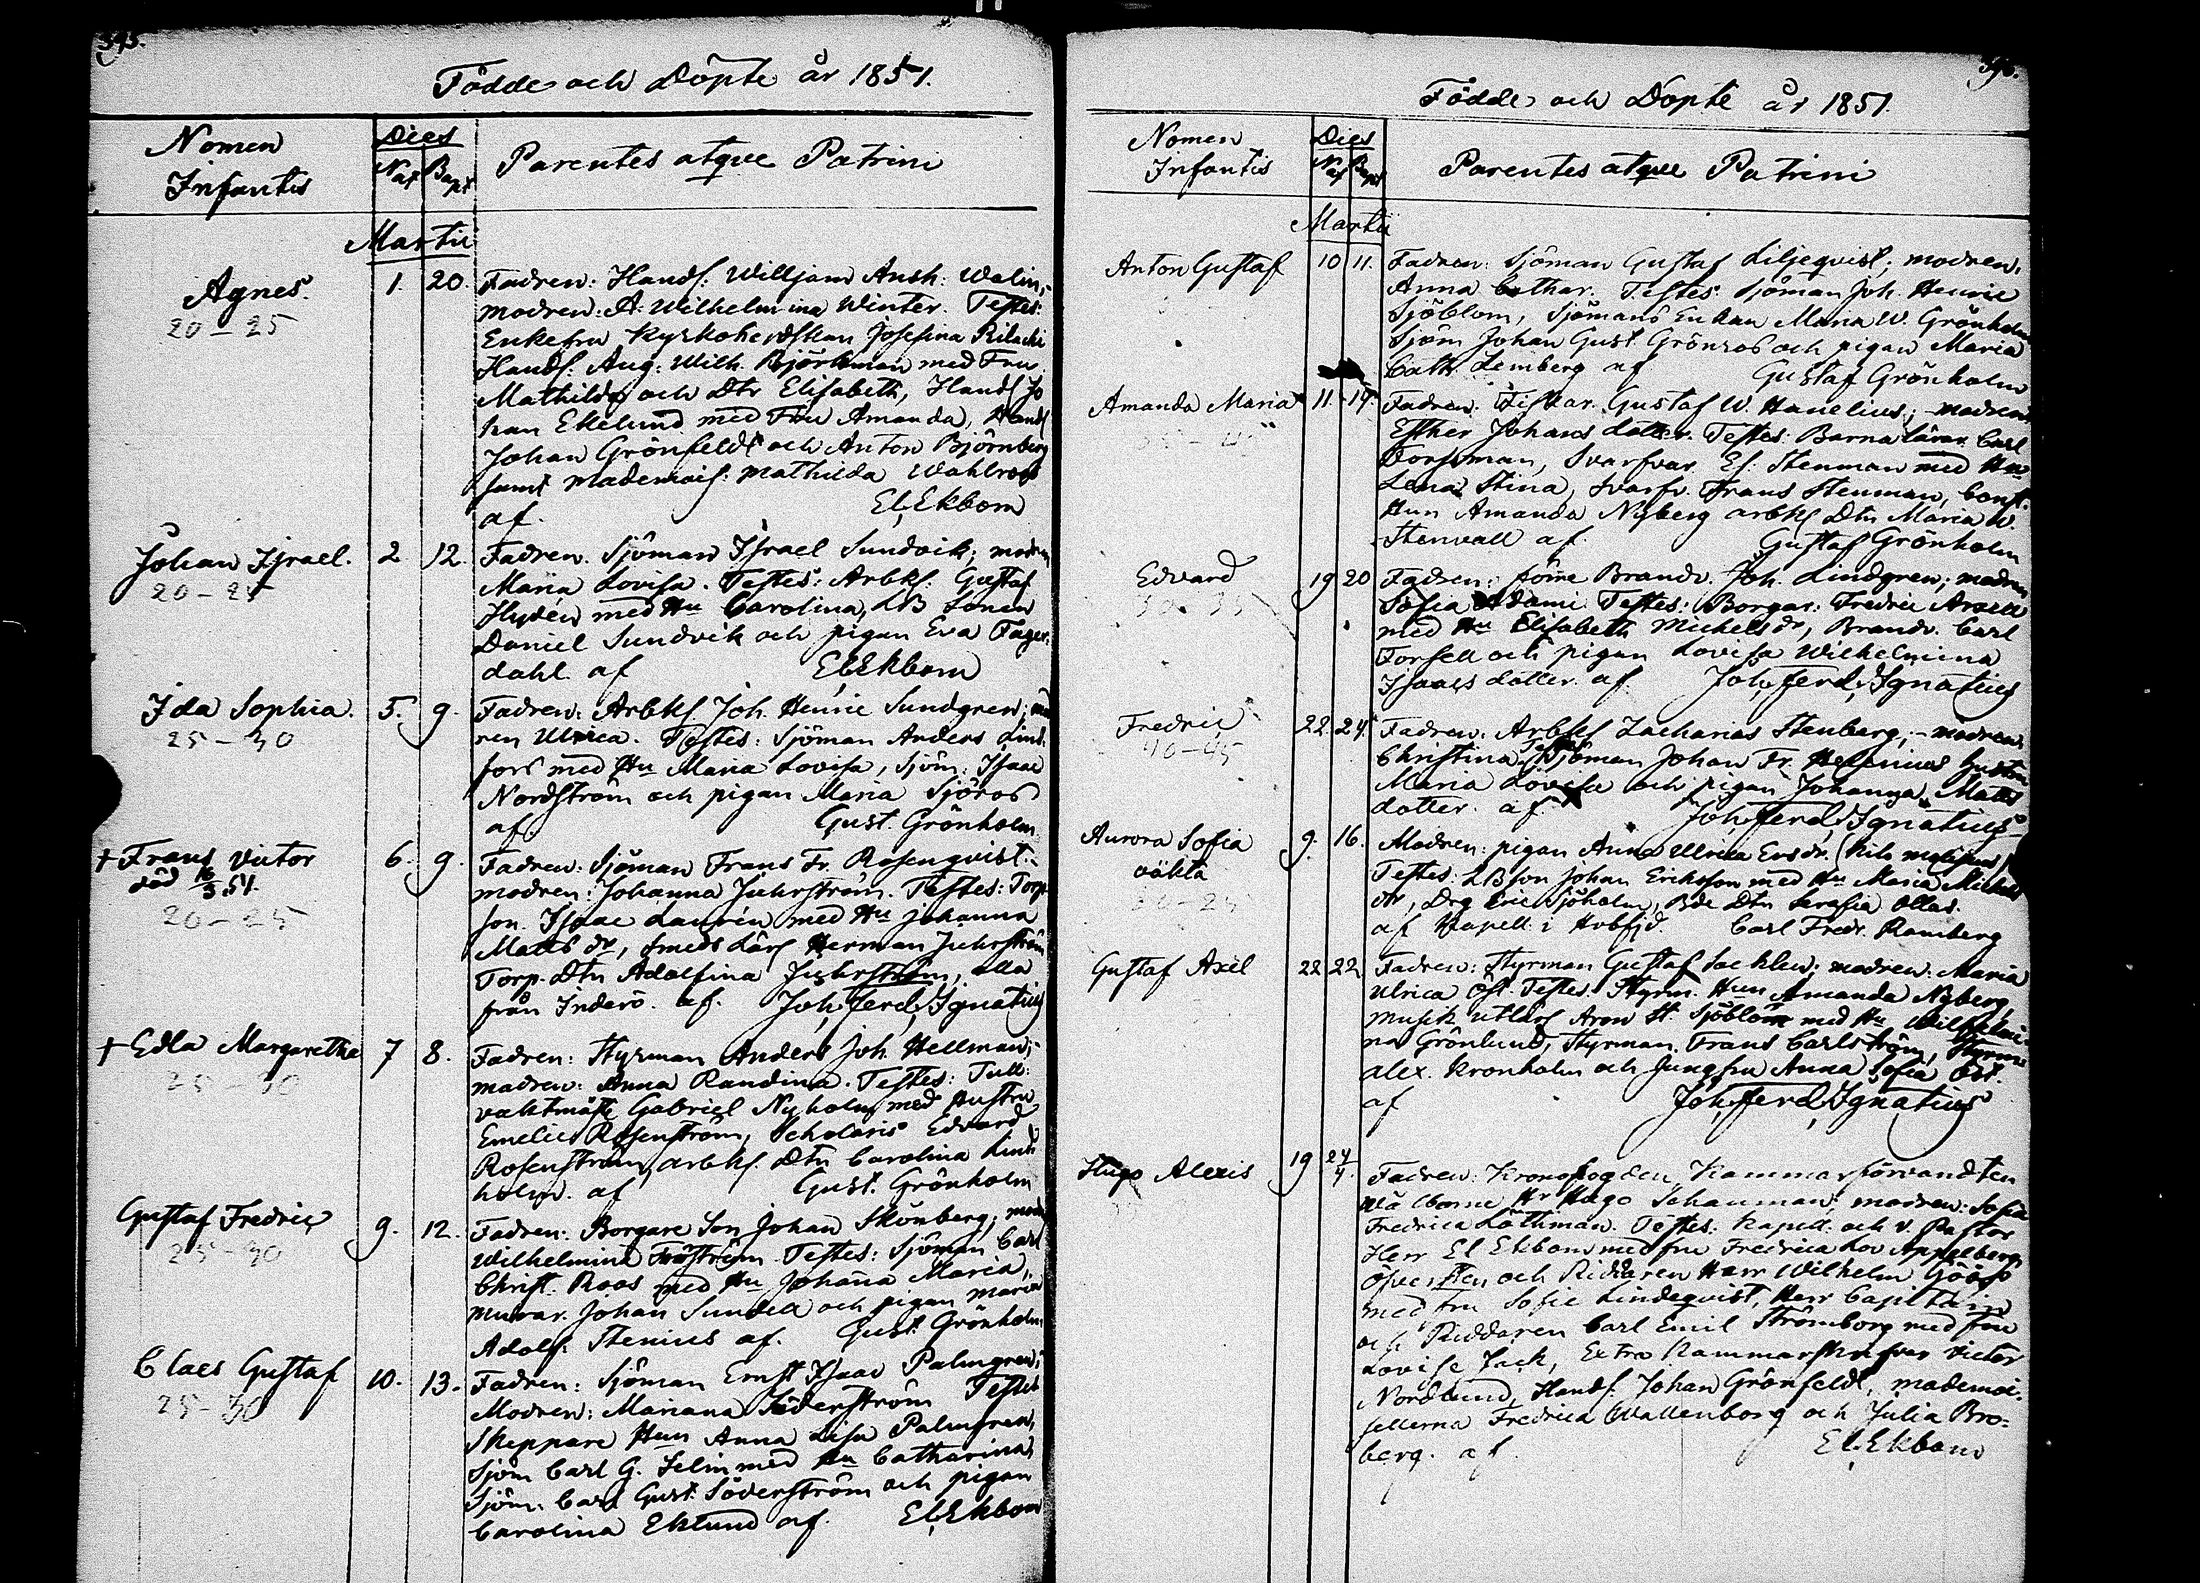 395.
Födde och Döpte år 1851.
Nomen Infantis
Dies
Nat Bapt
Parentes atque Patrini
Martii
Agnes. 1. 20. Fadren: Handl: Willjam Ansh: Walin,-
20-25
modren: A: Wilhelmina Winter. Testes:
Enkefru Kyrkoherdskan Josefina
Handl: Aug: Wilh. Björkman med Fru
Mathilda och Dtr Elisabeth, Handl Jo
han Ekelund med Fru Amanda, Handl
Johan Grönfeldt och Anton Björnberg
samt mademois: Mathilda Wahlroos
af. El. Ekbom
Johan Israel. 2. 12. Fadren. Sjöman Israel Sundvik; modren
20-25
Maria Lovisa. Testes: Arbks. Gustaf
Hydén med Hu Carolina, LB Sonen
Daniel Sundvik och pigan Eva Fager-
dahl. af El. Ekbom
Ida Sophia. 5. 9. Fadren: Arbks Joh. Henric Sundgren; mod
25-30
ren Ulrica. Testes: Sjöman Anders Lind-
fors med Hu Maria Lovisa, Sjöm: Isaac
Nordström och pigan Maria Sjöros
af. Gust. Grönholm
† Frans Victor 6. 9. Fadren: Sjöman Frans Fr. Rosenqvist.-
död 16/3 51.
20-25
modren: Johanna Juhrström. Testes: Torp-
son. Isaac Laurén med Hu Johanna
Matts dr, Smeds Lärl Herman Juhrström
Torp. Dtn Adolfina Juhrström, alla
från Inderö. af. Joh. Ferd. Ignatius
† Edla Margaretha 7 8. Fadren: Styrman Anders Joh. Hellman;-
25-30
modren: Anna Randina. Testes: Tull-
vaktmäst Gabriel Nyholm med Hustru
Emelie Rosenström, Scholaris Edvard
Rosenström, arbks. Dtn Carolina Lind
holm. af Gust. Grönholm
Gustaf Fredric 9. 12. Fadren: Borgare Son Johan Skönberg; modr
25-30
Wilhelmina Fröström. Testes: Sjöman Carl
Christ. Roos med Hu Johanna Maria,
murar. Johan Sundell och pigan Maria
Adolf. Stenius af. Gust. Grönholm
Claes Gustaf 10. 13. Fadren: Sjöman Ernst Isaac Palmgren;
25-30
Modren: Mariana Söderström Testes
Skeppare Hun Anna Lisa Palmgren,
Sjöm Carl G. Selin med Hu Catharina,
Sjöm. Carl Gust. Söderström och pigan
Carolina Eklund af. El. Ekbom
396.
Födde och Döpte år 1851.
Nomen Infantis
Dies
Nat Bapt
Parentes atque Patrini
Martii
Anton Gustaf 10 11. Fadren: Sjöman Gustaf Liljeqvist; modren.
Anna Cathar. Testes: Sjöman Joh. Henric
Sjöblom, Sjömans Enkan Maria W. Grönholm
Sjöm Johan Gust. Grönroos och pigan Maria
Cath. Lemberg af Gustaf Grönholm
Amanda Maria 11. 19. Fadren: Fiskar. Gustaf W. Hanelius; modren
Esther Johans dotter. Testes: Barnalärar. Carl
Forssman, Svarfvar. El. Stenman med Hu
Lena Stina, Svarfv. Frans Stenman, Const.
Hun Amanda Nyberg arbks Dtn Maria W.
Stenvall af. Gustaf Grönholm
Edvard 19 20 Fadren: Brandv. Joh. Lindgren; modren
Sofia Adami Testes: Borgar: Fredric
med Hu Elisabeth Michels dr, Brandv. Carl
Forsell och pigan Lovisa Wilhelmina
Isaacs dotter. af Joh. Ferd. Ignatius
Fredric 22. 24. Fadren: Arbks Zacharias Stenberg;- modren
40-45
Christina. Test. Sjöman Johan Fr. Helenius hustru
Maria Lovisa och pigan Johanna Matts
dotter. af Joh. Ferd. Ignatius
Aurora Sofia 9. 16. Modren: pigan Anna Ulrica Ersdr.
oäkta
Testes: LBson Johan Eriksson med Hu Maria Michels
dr, Drg Eric Sjöholm, Bde Dtn Serafia Ollas.
af Kapell. i Hvbfjd. Carl Fredr. Ramberg
Gustaf Axel 22 22 Fadren: Styrman Gustaf Saeklen; modren: Maria
Ulrica Öst. Testes Styrm. Hun Amanda Nyberg,
Musik utlärl Aron St. Sjöblom med Hu Wilhelmi-
na Grönlund, Styrman. Frans Carlström, Styrm
Alex. Kronholm och Jungfru Anna Sofia Öst.
af Joh. Ferd. Ignatius
Hugo Alexis 19 24/4. Fadren: Kronofogden, Kammarförvandten
Wälborne Hr Hugo Schauman; modren: Sofia
Fredrica Löthman. Testes: Kapell. och v. Pastor
Herr El Ekbom med fru Fredrica Lov Appelberg,
Öfversten och Riddaren Herr Wilhelm Gööss
med fru Sofie Lindeqvist, Herr Capitain
och Riddaren Carl Emil Strömborg med fru
Lovise Jack, Extra Kammarskrifvar Victor
Nordlund, Handl: Johan Grönfeldt, mademoi-
sellerna Fredrica Wallenborg och Julia Bro-
berg. af. El. Ekbom